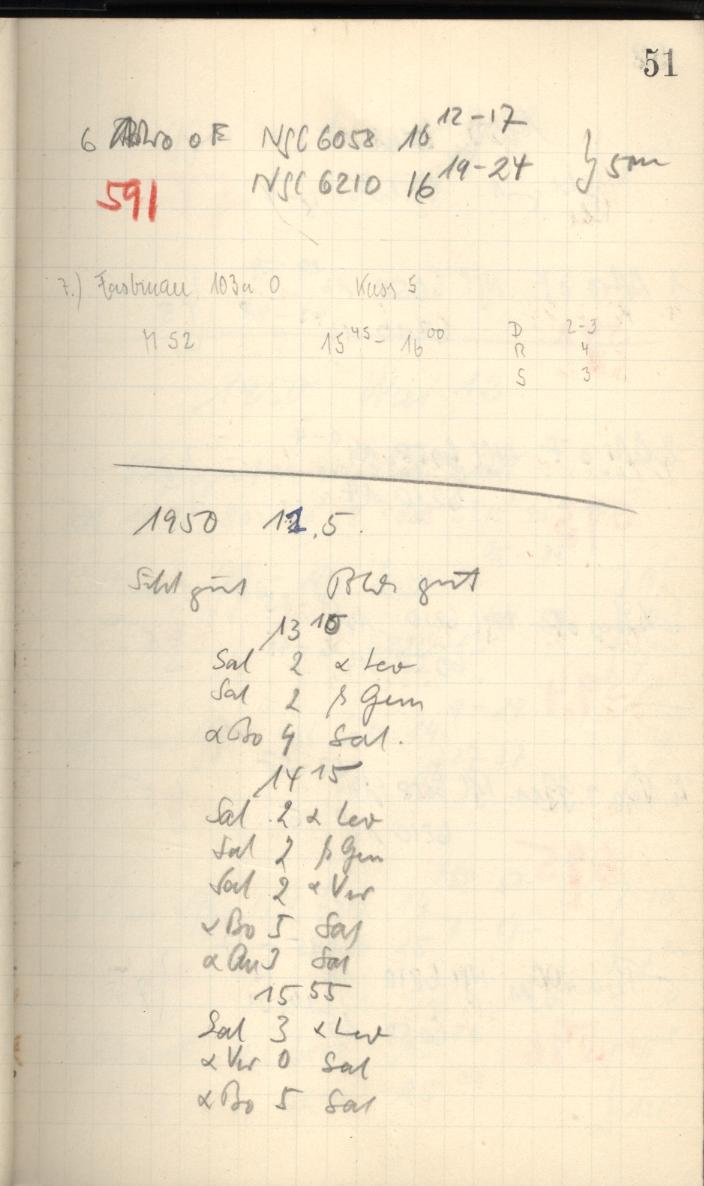 51
6 oF NGC 6058 16 12-17
591 NGC 6210 16 19-24 } 5m
7.) 103a O Kass 5
M 52 15 45 - 16 00 D 2-3
R 4
S 3
1950 12.5.
Sicht gut gut
13 10
Sat 2 α Leo
Sat 2 β Gem
α Bo 4 Sat.
14 15
Sat 2 α Leo
Sat 2 β Gem
Sat 2 α Vir
α Bo 5 Sat
α Au 3 Sat
15 55
Sat 3 α Leo
α Vir 0 Sat
α Bo 5 Sat